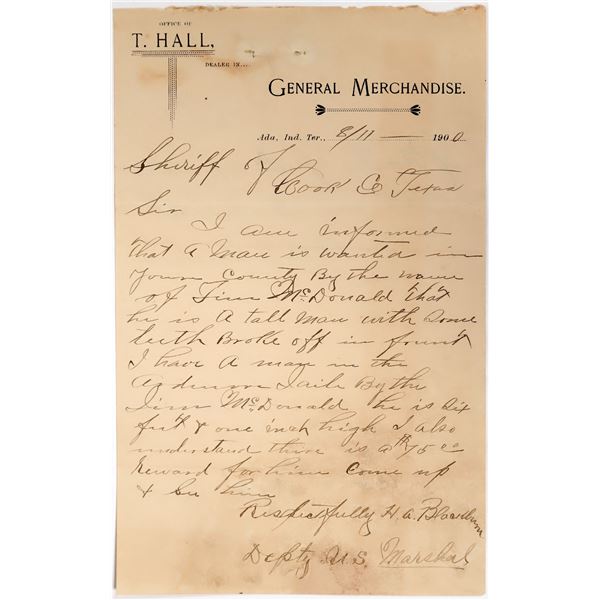 OFFICE OF
T. HALL,
DEALER IN...
GENERAL MERCHANDISE.
Ada, Ind. Ter., 8/11 — 1900
Sheriff of
Cook Co Texas
Sir
I am informed
that a Man is wanted in
youre county By the name
of Jim McDonald "that"
he is A tall Man with some
teeth Broke off in frount
I have A man in the
Ardmore Jaile By the
Jim McDonald he is six
fut & one inch high I also
understand there is a 75 00
Reward for him Come up
& See him
Respectfully H. A. Blackburn
Depty U.S. Marshal